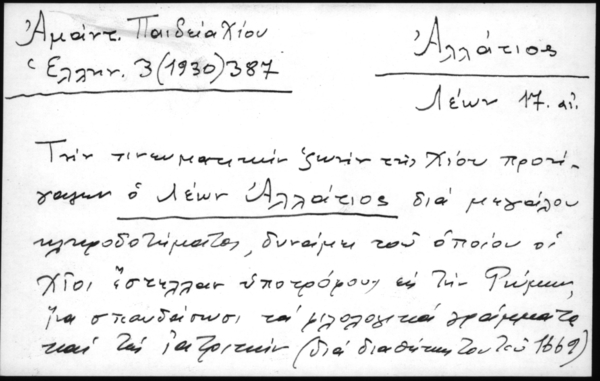 Ἀμάντ. Παιδεία Χίου
Ἑλλην. 3 (1930) 387
Ἀλλάτιος
Λέων 17. αἰ.
Τὴν πνευματικὴν ζωὴν τῆς Χίου προή-
γαγεν ὁ Λέων Ἀλλάτιος διὰ μεγάλου
κληροδοτήματος, δυνάμει τοῦ ὁποίου οἱ
Χῖοι ἔστελλαν ὑποτρόφους εἰς τὴν Ρώμην,
νὰ σπουδάσωσι τὰ φιλολογικὰ γράμματα
καὶ τὴν ἰατρικήν (διὰ διαθήκης του τοῦ 1669)